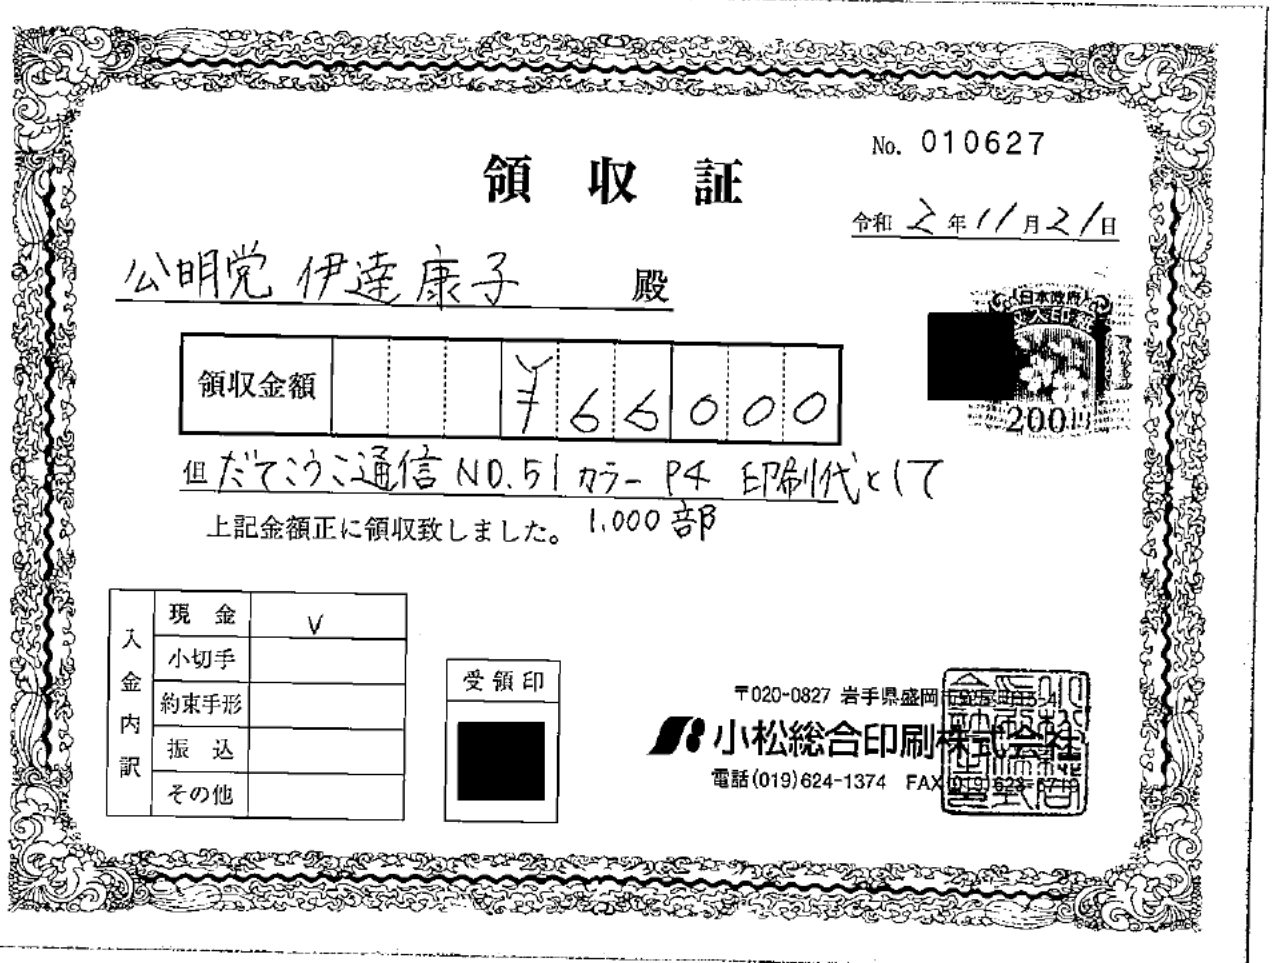 No. 010627
領収証
令和 2年11月21日
公明党 伊達康子 殿
領収金額 ¥66000
但 だてこうこ通信 NO.51 カラー P4 印刷代として
上記金額正に領収致しました。 1,000部
入金内訳
現金 V
小切手
約束手形
振込
その他
受領印
日本政府
200円
〒020-0827 岩手県盛岡市
小松総合印刷株式会社
電話(019)624-1374 FAX(019)623-6719